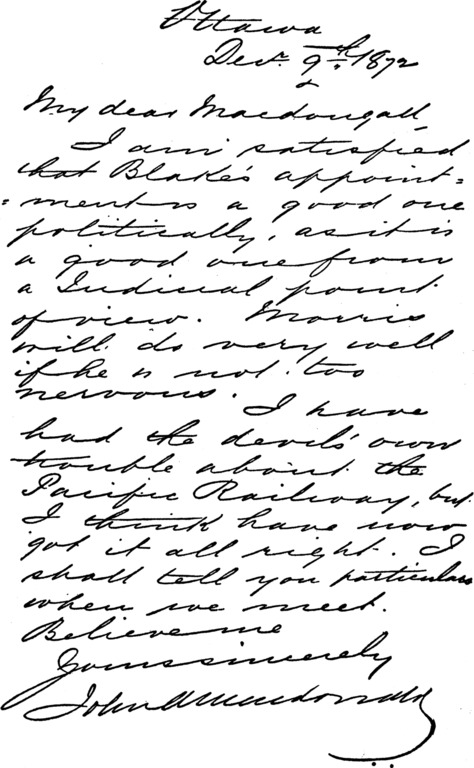 Ottawa
Decr. 9th. 1872
My dear Macdougall,
I am satisfied
that Blake's appoint=
=ment is a good one
politically, as it is
a good one from
a Judicial point
of view. Morris
will do very well
if he is not too
nervous.
I have
had the devil's own
trouble about the
Pacific Railway, but
I think have now
got it all right. I
shall tell you particulars
when we meet.
Believe me
Yours sincerely
John A Macdonald